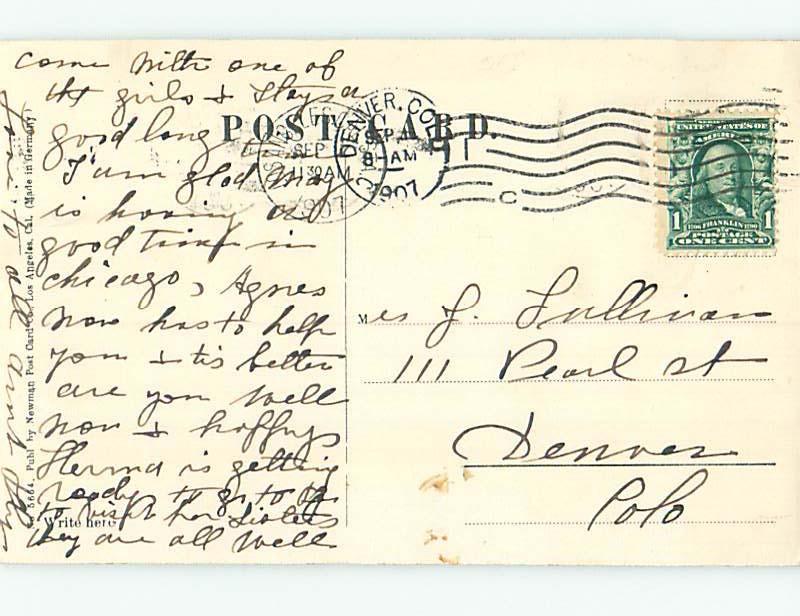 come with one of
the girls & stay a
good long
I am glad May
is having a
good time in
chicago, Agnes
now has to help
you & tis better
are you well
now & happy
Herma is getting
ready to go to
to visit her Sisters
they are all well
Love to all
POST CARD.
DENVER, COLO.
SEP
8-AM
1907
SEP
11 30 AM
1907
C
UNITED STATES OF
AMERICA
1706 FRANKLIN 1790
1 POSTAGE 1
ONE CENT
Mrs J. Sullivan
111 Pearl st
Denver
Colo
Write here
No 5664. Publ by Newman Post Card Co. Los Angeles, Cal. (Made in Germany)